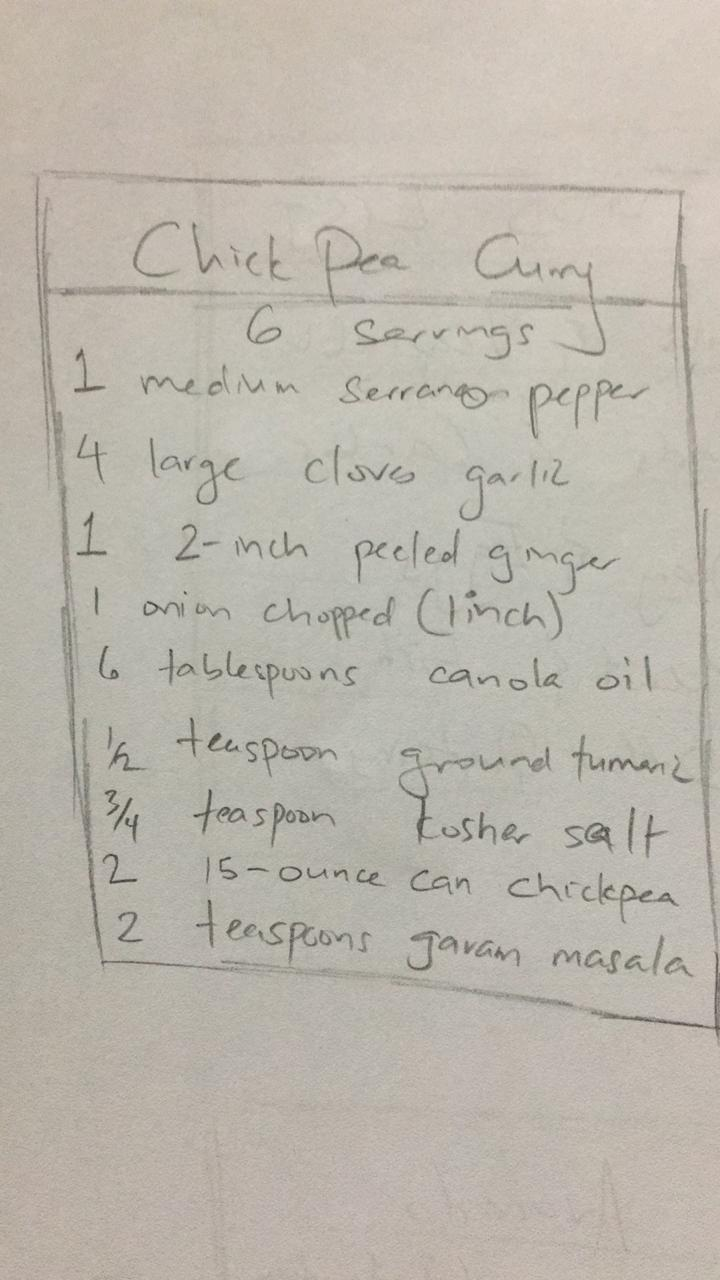 Chick Pea Curry
6 servings
1 medium serrano pepper
4 large cloves garlic
1 2-inch peeled ginger
1 onion chopped (1inch)
6 tablespoons canola oil
1/2 teaspoon ground tumeric
3/4 teaspoon kosher salt
2 15-ounce can chickpea
2 teaspoons garam masala